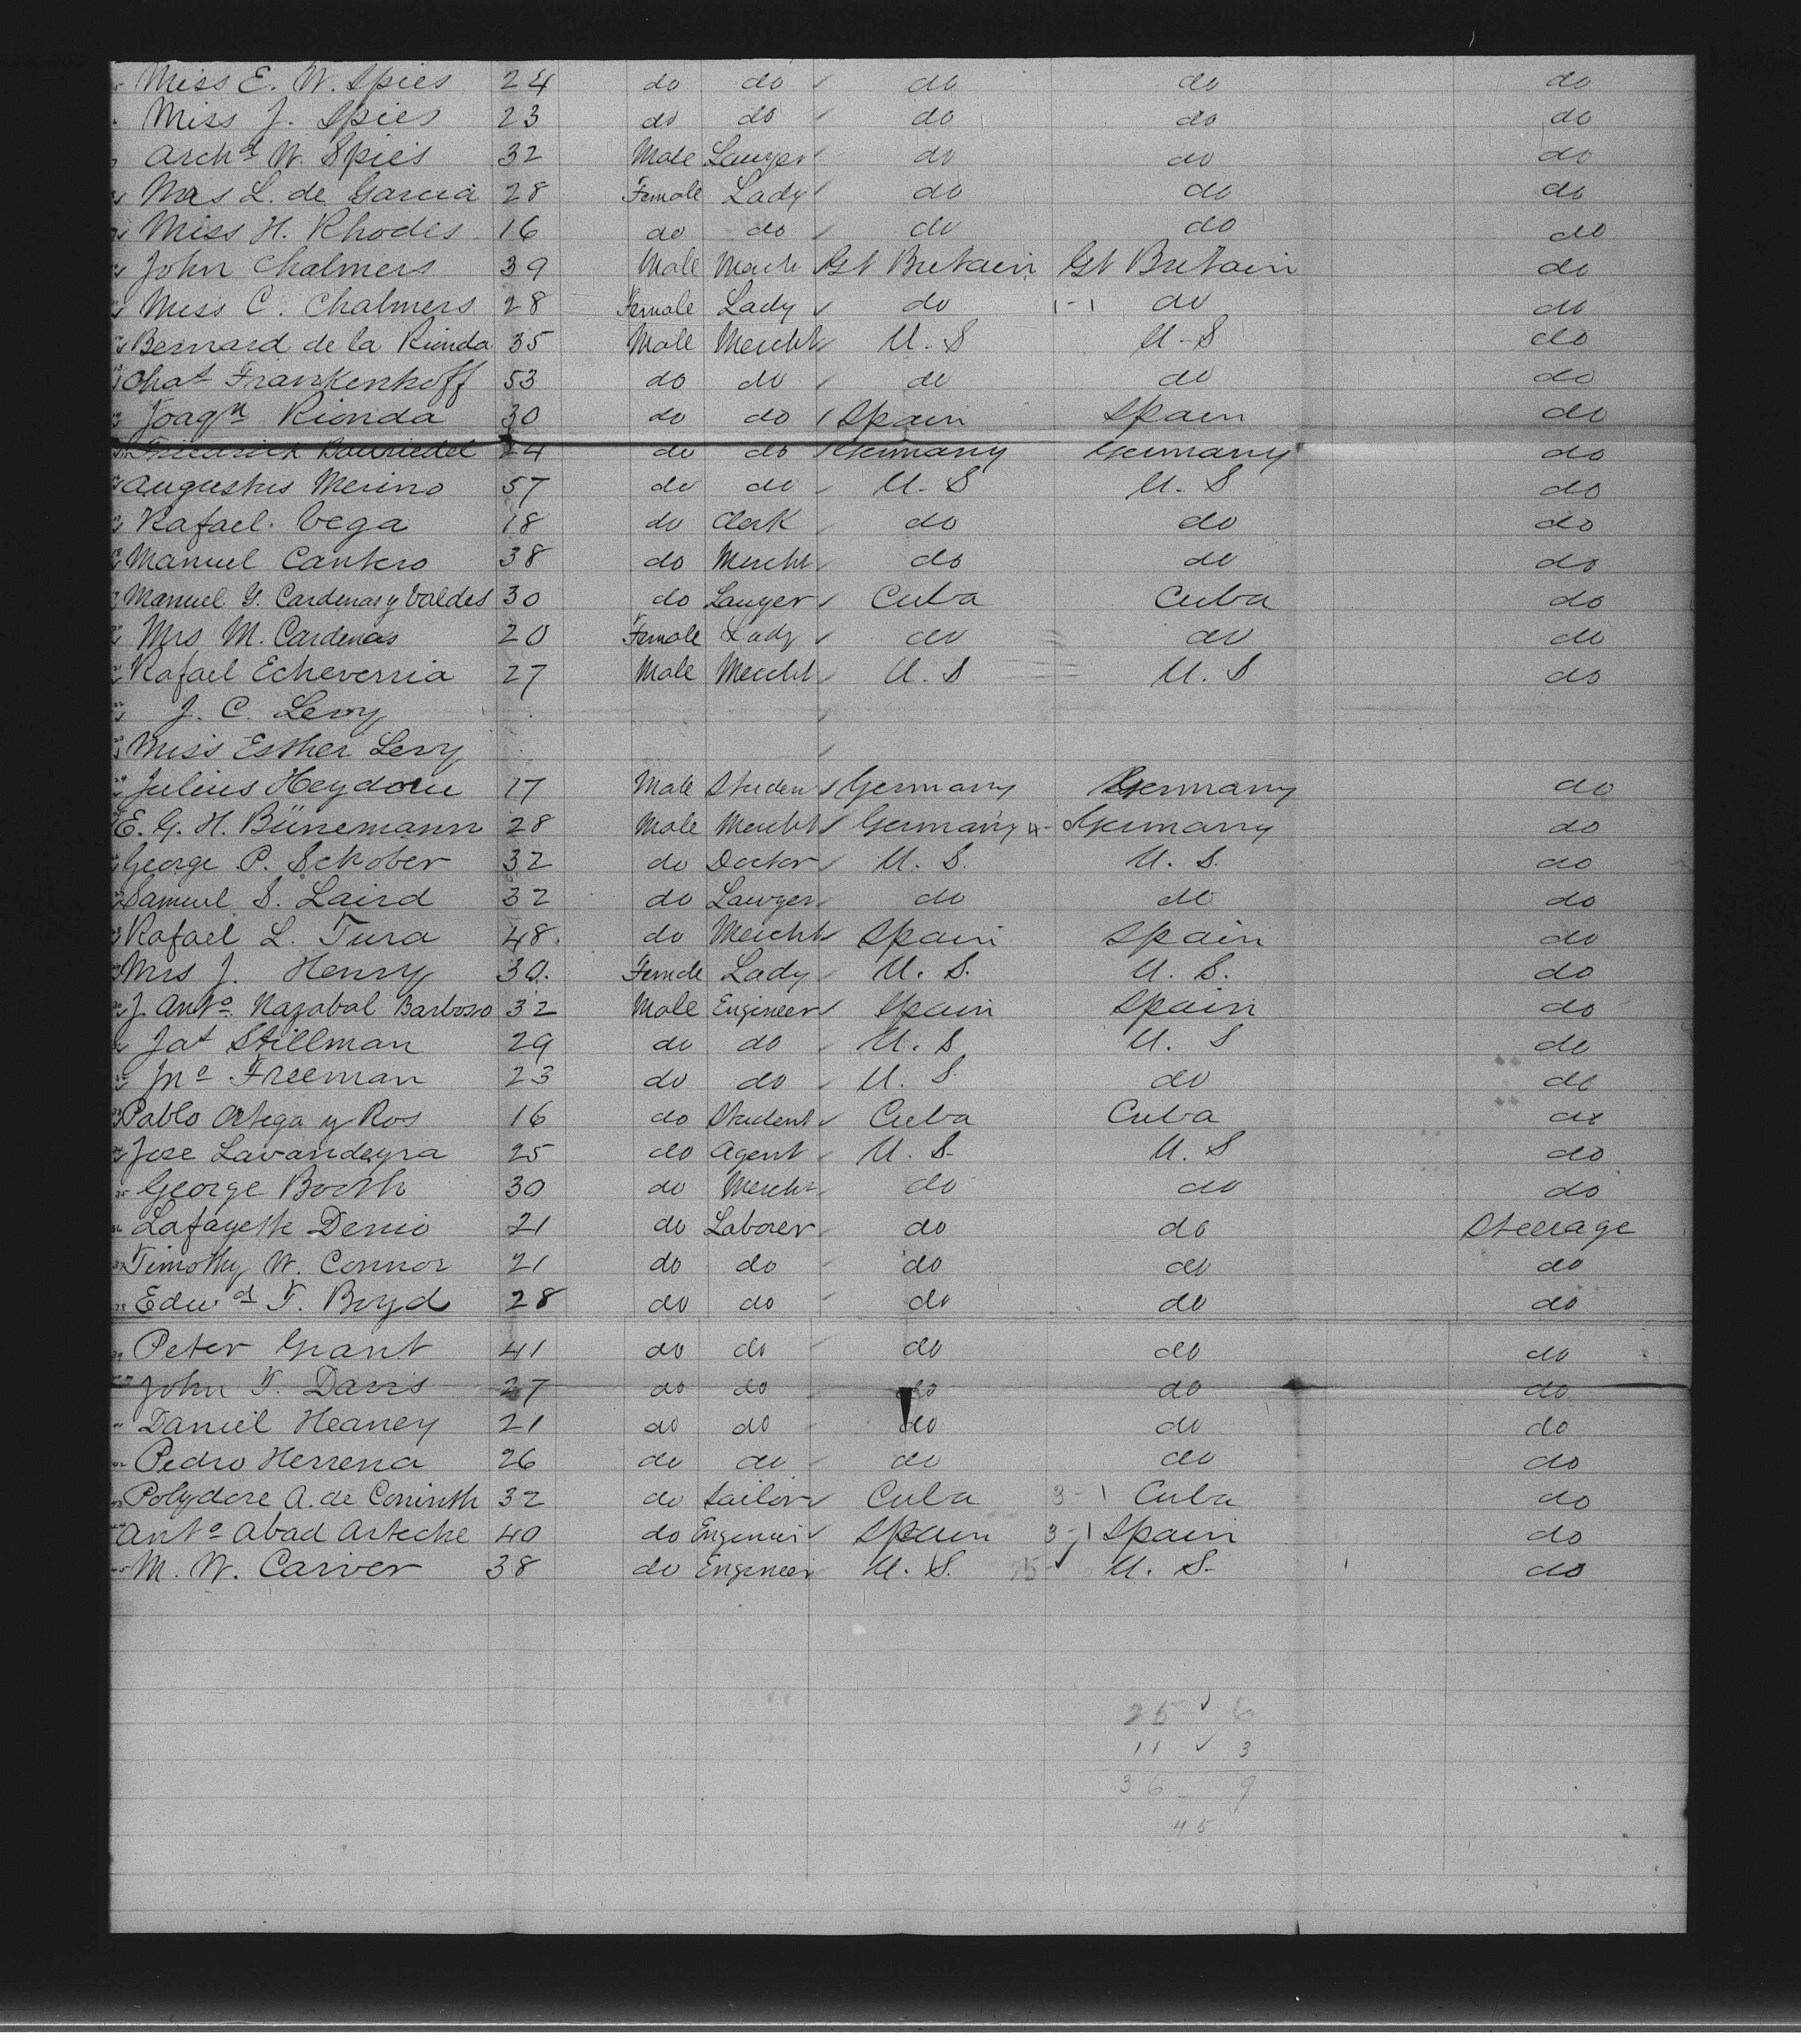 Miss E. W. Spies 24 do do do do do
Miss J. Spies 23 do do do do do
Archd W. Spies 32 Male Lawyer do do do
Mrs L. de Garcia 28 Female Lady do do do
Miss H. Rhodes 16 do do do do do
John Chalmers 39 Male Merch Gt Britain Gt Britain do
Miss C. Chalmers 28 Female Lady do do do
Bernard de la Rionda 35 Male Mercht U. S U. S do
Chas Frankenhoff 53 do do do do do
Joaqn Rionda 30 do do Spain Spain do
Friedrich 24 do do Germany Germany do
Augustus Merino 57 do do U. S U. S do
Rafael Vega 18 do Clerk do do do
Manuel Cantero 38 do Mercht do do do
Manuel G. Cardenas y Valdes 30 do Lawyer Cuba Cuba do
Mrs M. Cardenas 20 Female Lady do do do
Rafael Echeverria 27 Male Mercht U. S U. S do
J. C. Levy
Miss Esther Levy
Julius Heydorn 17 Male Studen Germany Germany do
E. G. H. Bünemann 28 Male Mercht Germany 4- Germany do
George P. Schober 32 do Doctor U. S. U. S. do
Samuel S. Laird 32 do Lawyer do do do
Rafael L. Tura 48 do Mercht Spain Spain do
Mrs J. Henry 30. Female Lady U. S. U. S. do
J. Anto Nazabal Barboso 32 Male Engineer Spain Spain do
Jas Stillman 29 do do U. S U. S do
Jno Freeman 23 do do U. S. do do
Pablo Ortega y Ros 16 do Student Cuba Cuba do
Jose Lavandeyra 25 do Agent U. S. U. S do
George Booth 30 do Mercht do do do
Lafayette Denio 21 do Laborer do do Steerage
Timothy W. Connor 21 do do do do do
Edwd T. Boyd 28 do do do do do
Peter Grant 41 do do do do do
John T. Davis 27 do do do do do
Daniel Heaney 21 do do do do do
Pedro Herrera 26 do do do do do
Polydore A. de Corinth 32 do Sailor Cuba 3-1 Cuba do
Anto Abad Arteche 40 do Engineer Spain 3-1 Spain do
M. W. Carver 38 do Engineer U. S. U. S. do
25 6
11 3
36 9
45